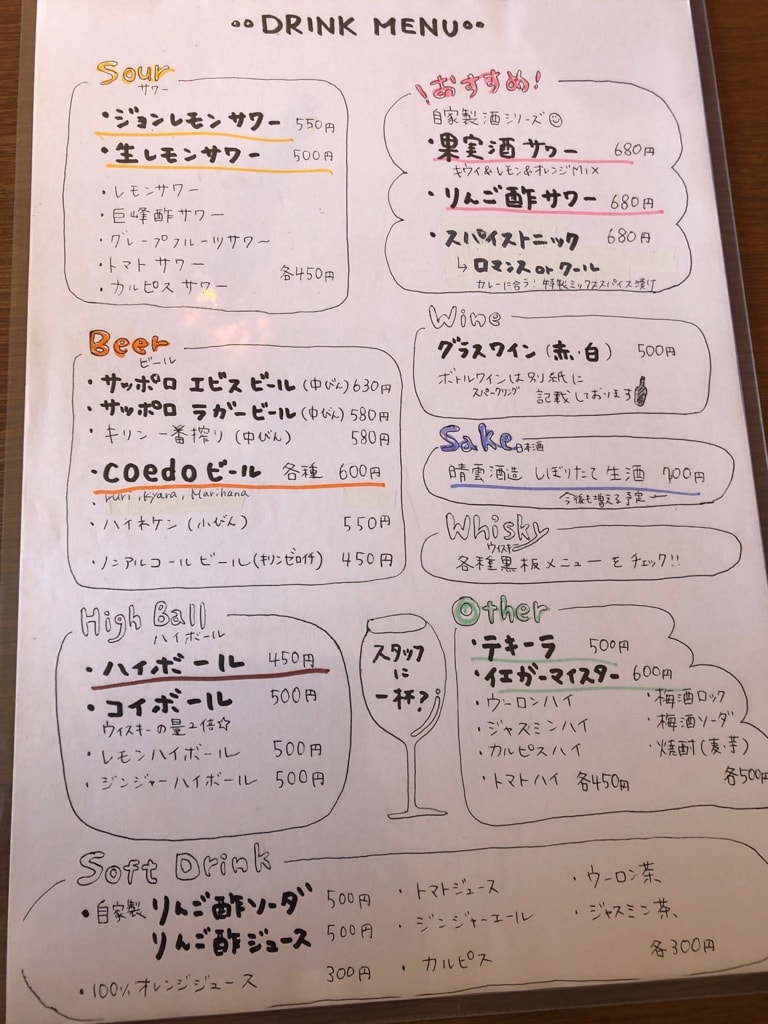 DRINK MENU
Sour
サワー
・ジョンレモンサワー 550円
・生レモンサワー 500円
・レモンサワー
・巨峰酢サワー
・グレープフルーツサワー
・トマトサワー
・カルピスサワー 各450円
\おすすめ!
自家製酒シリーズ☺
・果実酒サワー 680円
キウイ&レモン&オレンジMix
・りんご酢サワー 680円
・スパイストニック 680円
↳ロマンス or クール
カレーに合う!特製ミックススパイス漬け
Beer
ビール
・サッポロ エビスビール(中びん)630円
・サッポロ ラガービール(中びん)580円
・キリン 一番搾り(中びん) 580円
・coedoビール 各種 600円
ruri, kyara, Marihana
・ハイネケン(小びん) 550円
・ノンアルコールビール(キリンゼロイチ) 450円
Wine
グラスワイン(赤・白) 500円
ボトルワインは別紙に
スパークリング 記載しております
Sake 日本酒
晴雲酒造 しぼりたて 生酒 700円
今後も増える予定
Whisky
ウイスキー
各種黒板メニューをチェック!!
High Ball
ハイボール
・ハイボール 450円
・コイボール 500円
ウィスキーの量2倍☆
・レモンハイボール 500円
・ジンジャーハイボール 500円
スタッフ
に
一杯?
Other
・テキーラ 500円
・イエガーマイスター 600円
・ウーロンハイ
・ジャズミンハイ
・カルピスハイ
・トマトハイ 各450円
・梅酒ロック
・梅酒ソーダ
・焼酎(麦・芋)
各500円
Soft Drink
・自家製 りんご酢ソーダ 500円
りんご酢ジュース 500円
・100%オレンジジュース 300円
・トマトジュース
・ジンジャーエール
・カルピス
・ウーロン茶
・ジャスミン茶
各300円